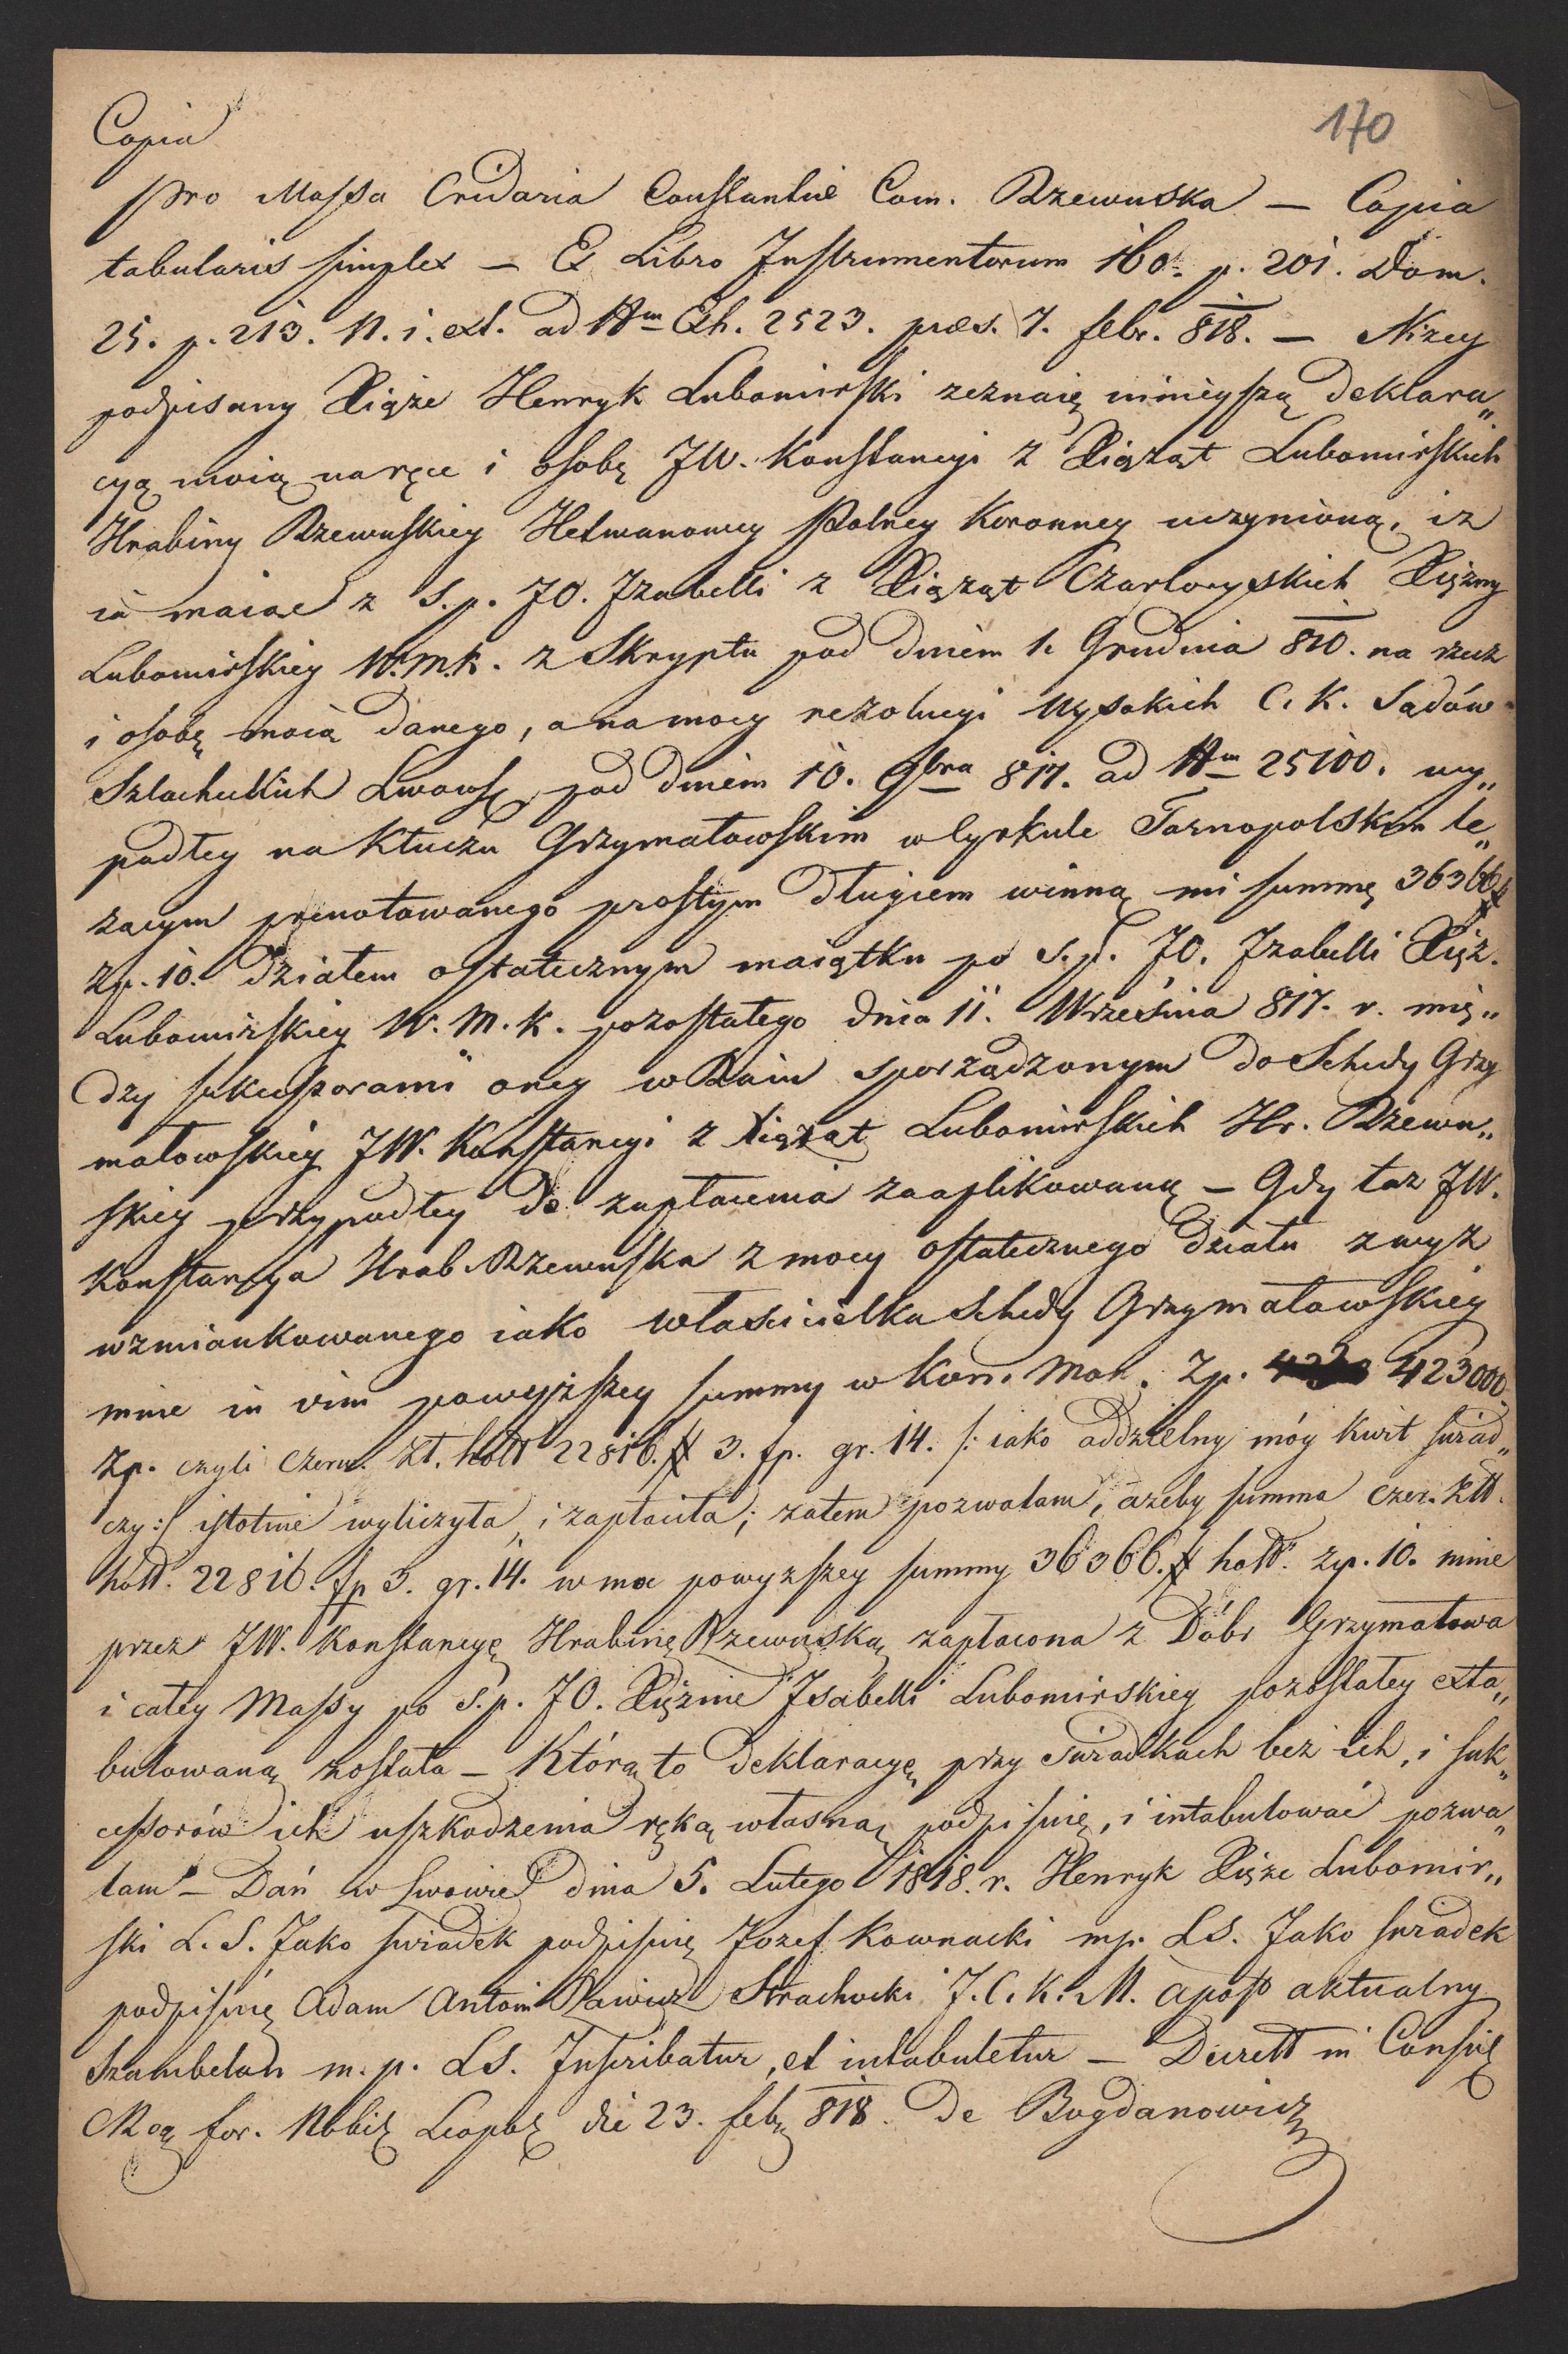 170
Copia
pro Massa Cridaria Constantiæ Com. Rzewuska — Copia
tabularis simplex — Ex Libro Instrumentorum 160. p. 201. Dom.
25. p. 213. n. 1. ext. ad Num Exh. 2523. præs. 7. febr. 818. — Niżey
podpisany Xiąże Henryk Lubomirski zeznaię ninieyszą deklara„
cyą moią na ręce i osobę JW. Konstancyi z Xiążąt Lubomirskich
Hrabiny Rzewuskiey Hetmanowey Polney Koronney uczynioną, iż
ia maiąc z S. p. JO. Izabelli z Xiążąt Czartoryskich Xiężny
Lubomirskiey W. M. K. z Skryptu pod dniem 1. Grudnia 810. na rzecz
i osobę moią danego, a na mocy rezolucyi Wysokich C. K. Sądów
Szlacheckich Lwowsk. pod dniem 10. 9bra 817. ad Num 25100. wy„
padłey na Kluczu Grzymałowskim w Cyrkule Tarnopolskim le„
żącym prenotowanego prostym długiem winną mi summę 36366 #
zp. 10. działem ostatecznym maiątku po s. p. JO. Izabelli Xięż.
Lubomirskiey W. M. K. pozostałego dnia 11. Września 817. r. mię„
dzy sukcessorami oney w Rain sporządzonym do Schedy Grzy
małowskiey JW. Konstancyi z Xiążąt Lubomirskich Hr. Rzewu„
skiey przypadłey do zapłacenia zaaplikowaną — Gdy taż JW.
Konstancya Hrab. Rzewuska z mocy ostatecznego działu zwyż
wzmiankowanego iako właścicielka Schedy Grzymałowskiey
mnie in vim powyższey summy w Kon. Mon. Zp. 423000
Zp. czyli Czerw. Zł. holl 22816. # 3. fp. gr. 14. /: iako oddzielny móy kwit świad„
czy :/ istotnie wyliczyła, i zapłaciła; zatem pozwalam, ażeby summa czer. złł.
holl. 22816. fp 3. gr. 14. w moc powyższey summy 36366. # holl. zp. 10. mnie
przez JW. Konstancyę Hrabinę Rzewuską zapłacona z Dóbr Grzymałowa
i całey Massy po S. p. JO. Xiężnie Isabelli Lubomirskiey pozostałey exta„
bulowaną została — Którą to deklaracyę przy świadkach bez ich, i suk„
cessorów ich uszkodzenia ręką własną podpisuię, i intabulować pozwa„
lam — Dań w Lwowie dnia 5. Lutego 1818. r. Henryk Xiąże Lubomir„
ski L. S. Jako świadek podpisuię Jozef Kownacki mp. LS. Jako świadek
podpisuię Adam Antoni Rawicz Strachocki J. C. K. M. apost aktualny
Szambelan m. p. LS. Inscribatur, et intabuletur — Decrett in Consil
Reg for. Nobil Leopol die 23. feb. 818. De Bogdanowicz